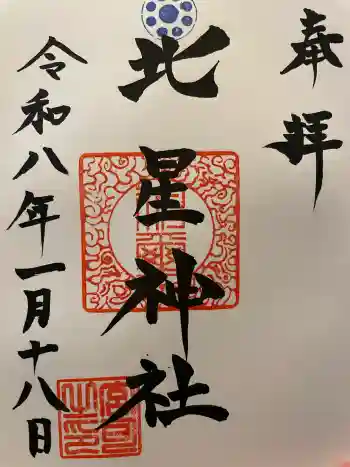 奉拝
北星神社
令和八年一月十八日